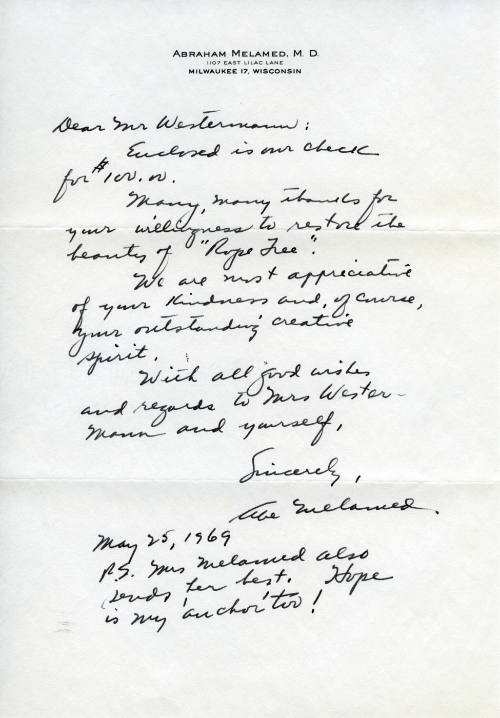 ABRAHAM MELAMED, M. D.
1107 EAST LILAC LANE
MILWAUKEE 17, WISCONSIN
Dear Mr Westermann:
Enclosed is our check
for $100.00.
Many, many thanks for
your willingness to restore the
beauty of "Rope Tree".
We are most appreciative
of your kindness and, of course,
your outstanding creative
spirit.
With all good wishes
and regards to Mrs Wester-
mann and yourself,
Sincerely,
Abe Melamed.
May 25, 1969
P.S. Mrs Melamed also
sends her best. Hope
is my 'anchor' too!